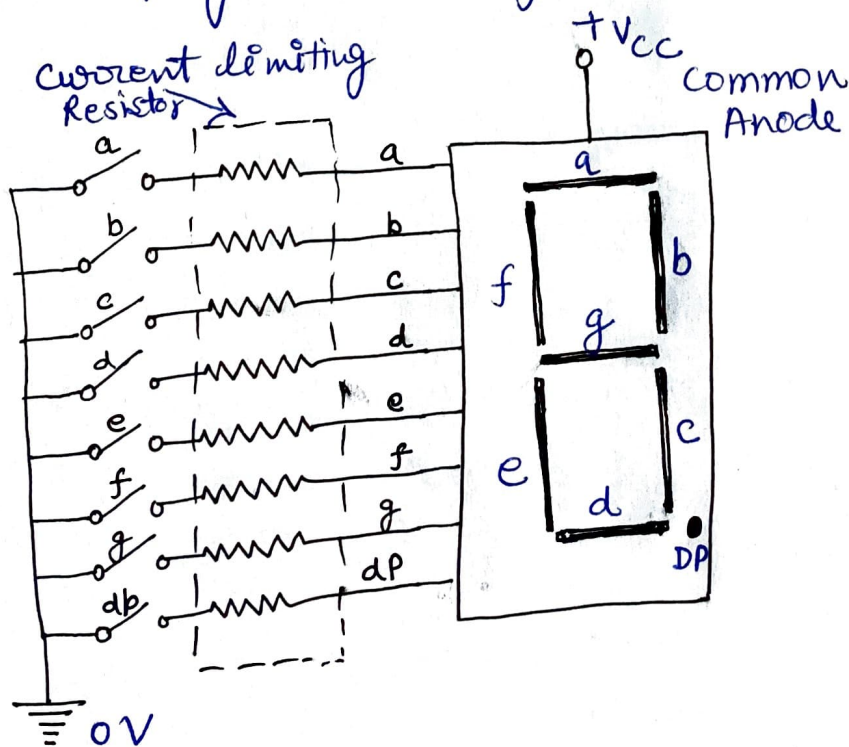 +VCC
Current limiting
Resistor
Common
Anode
a
b
c
d
e
f
g
dp
a
b
c
d
e
f
g
dP
a
f
b
g
e
c
d
DP
0V